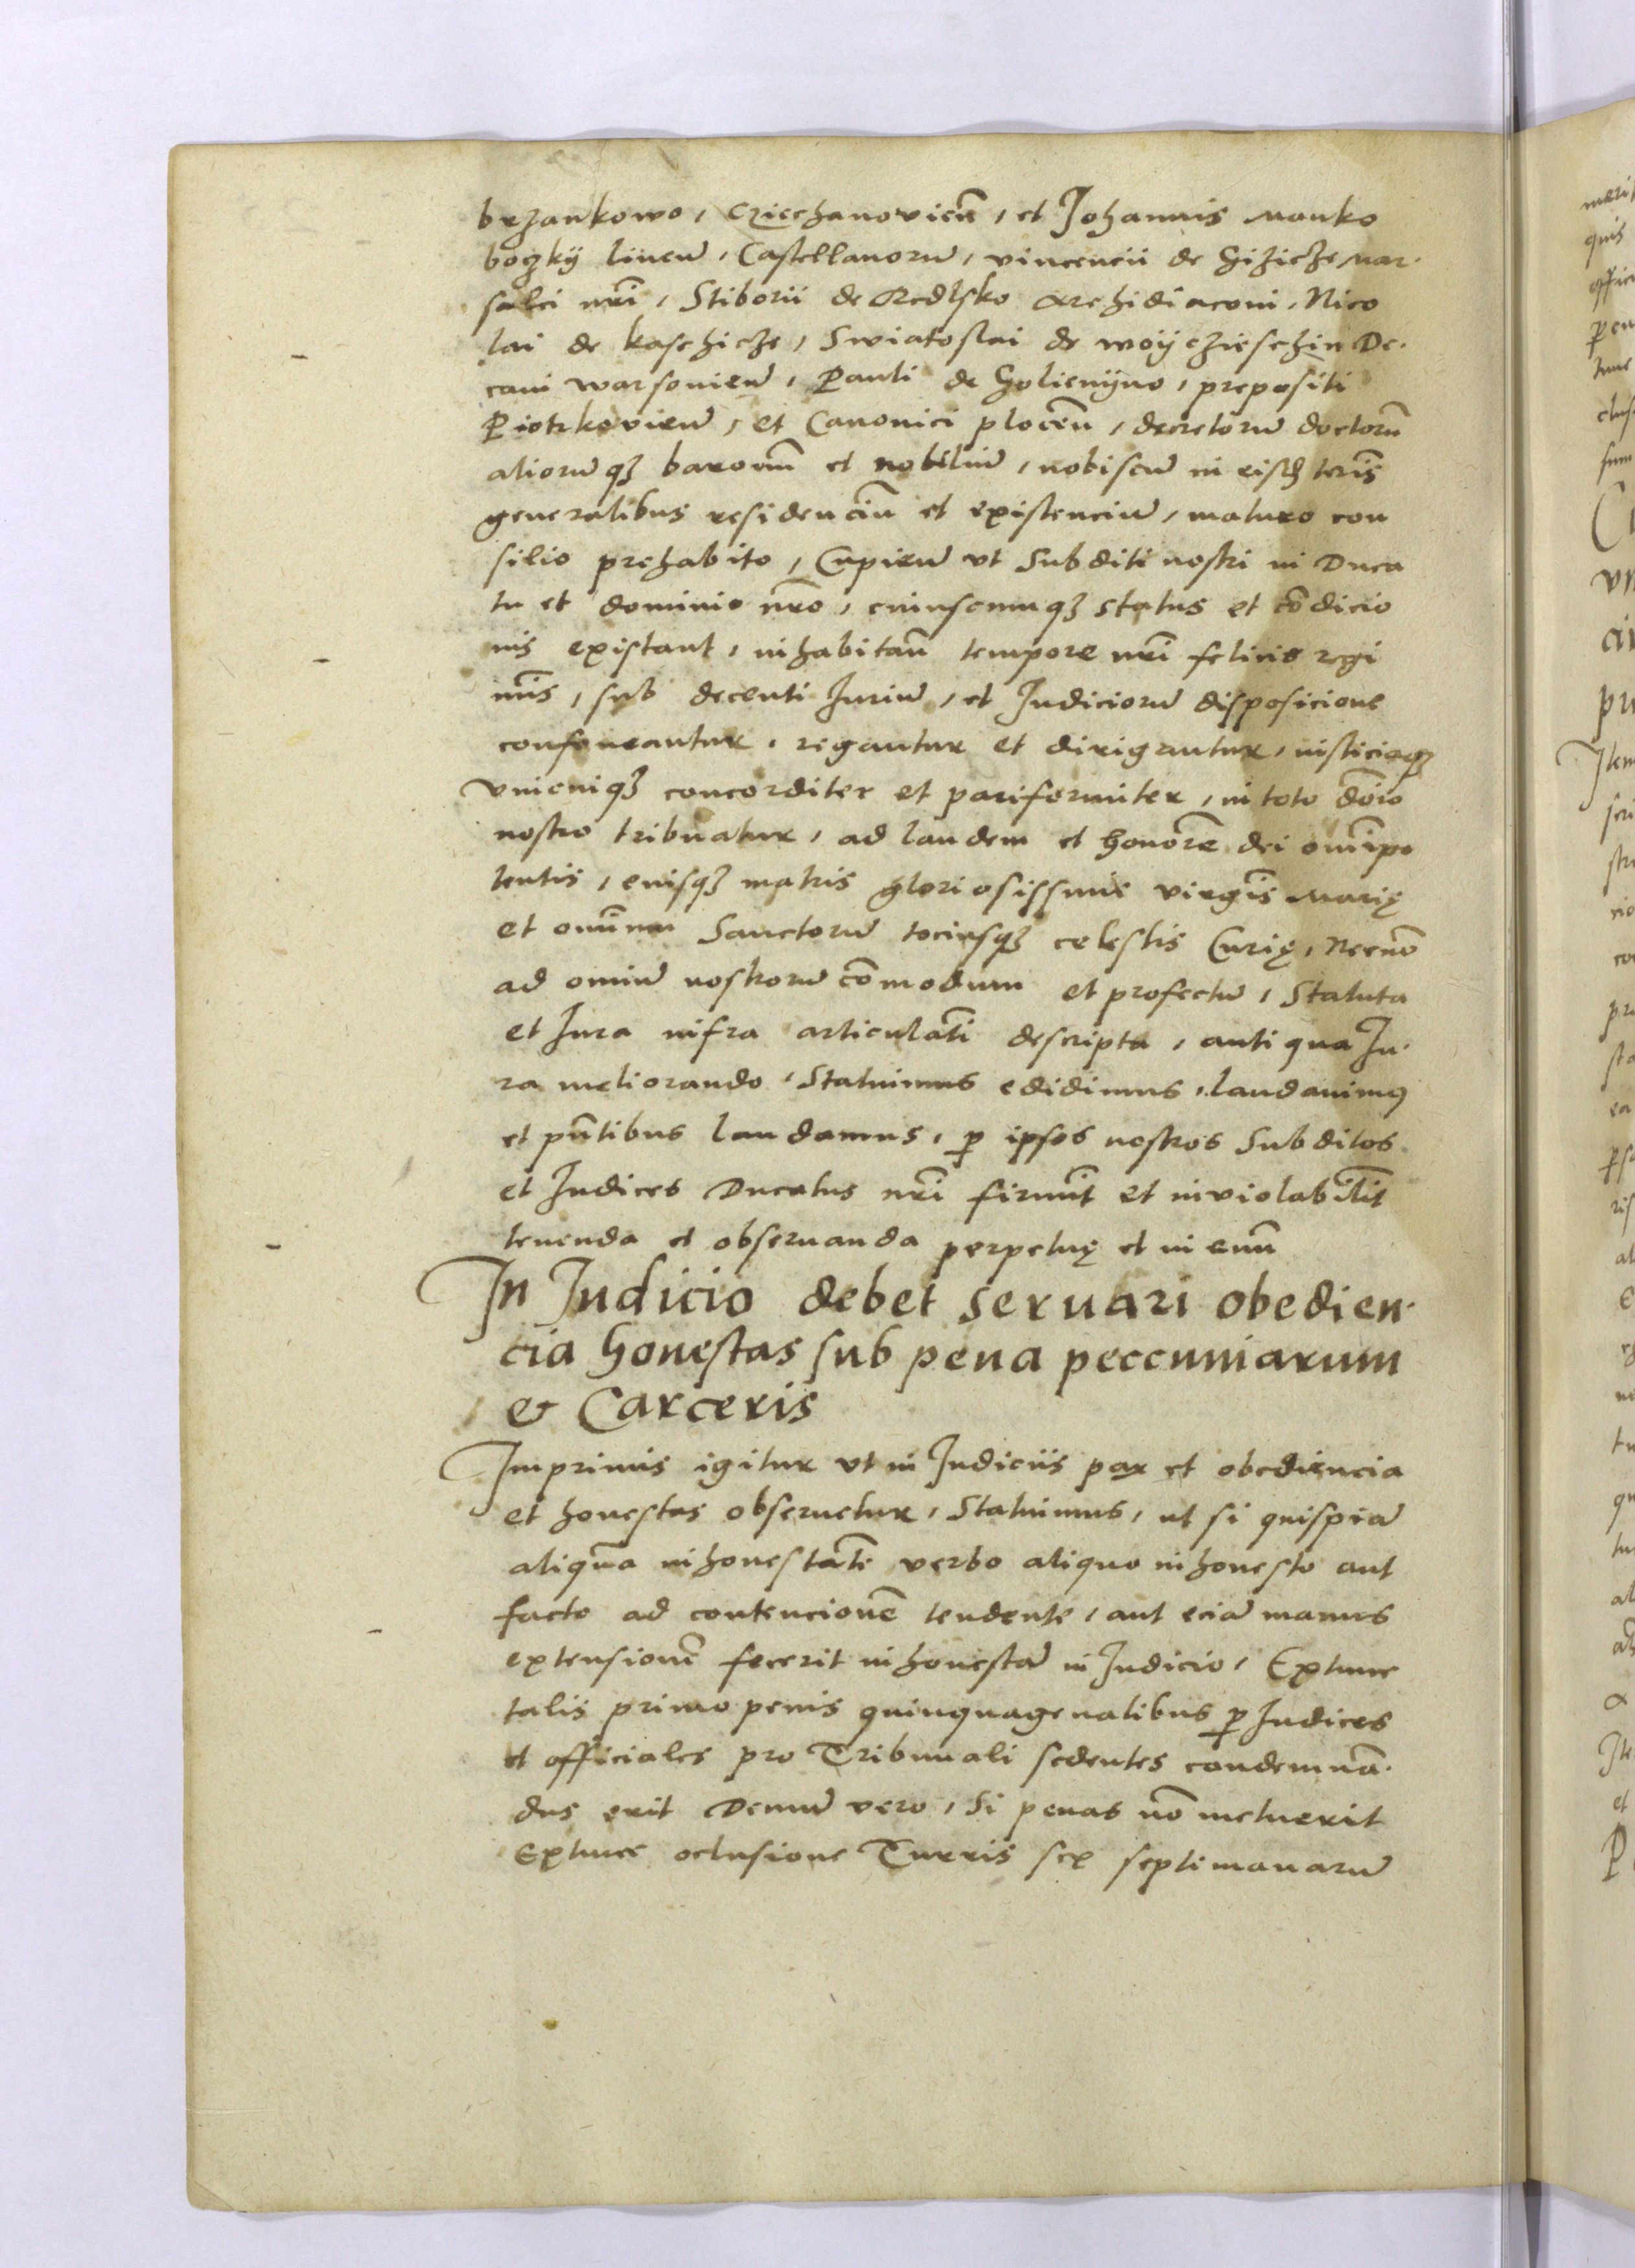 brzankowo, Cziechanovicen̄, et Johannis Manko
boczkÿ liiuen̄, Castellanorū, vincencii de Gizicze Mar-
salci nr̄i, Stiborii de Redlsko Archidiaconi, Nico
lai de kaschicze, Swiatoslai de woÿczieschin De-
cani warsouien̄, Pauli de Golienÿno, prepositi
Piotrkouien̄, et Canonici plocen̄, decretorū doctorū
aliorūqȝ baronū et nobiliū, nobiscū in eisdꝫ terīs
generalibus residenciū et existenciū, maturo con
silio prehabito, Cupien̄ ut Subditi nostri in Duca
tu et dominio nr̄o, cuiuscumqȝ status et cōdicio
nis existant, inhabitan̄ tempore nr̄i felicis regi
mīs, sub decenti Jurium, et Judiciorū disposicione
confoueantur, regantur et dirigantur, iusticiaqȝ
vnicuiqȝ concorditer et pariformiter, in toto dōio
nostro tribuatur, ad laudem et honorē dei omīpo
tentis, eiusqȝ matris gloriosissime virgīs Marię
et omnium Sanctorū tociusqȝ celestis Curię, Necnō
ad omniū nostrorū cōmodum et profectū, Statuta
et Jura infra articulatī descripta, antiqua Ju-
ra meliorando, Statuimus edidimus, laudauimꝯ
et pn̄tibus laudamus, ꝑ ipsos nostros Subditos
et Judices Ducatus nr̄i firmit̄ et inviolabilit̄
tenenda et obseruanda perpetuę et in euū
In Judicio debet seruari obedien-
cia honestas sub pena peccuniarum
& Carceris
Imprimis igitur ut in Judiciis pax et obediencia
et honestas obseruetur, Statuimus, ut si quispiā
aliquā inhonestatē verbo aliquo inhonesto aut
facto ad contencionē tendente, aut eciā manus
extensionē fecerit inhonestā in Judicio, Extunc
talis primo penis quinquagenalibus ꝑ Judices
et officiales pro Tribunali sedentes condemnā-
dus erit Demū vero, Si penas nō metuerit
Extunc oclusione Turris sex septimanarū